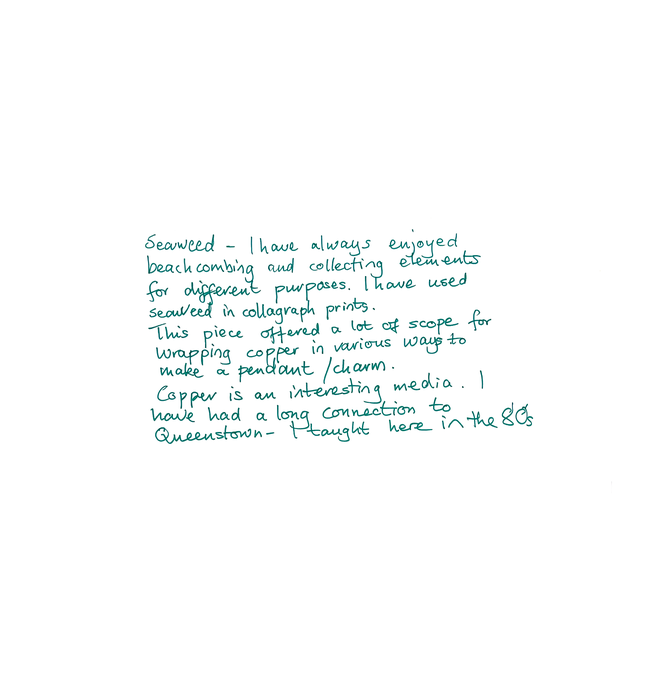 Seaweed – I have always enjoyed
beachcombing and collecting elements
for different purposes. I have used
seaweed in collagraph prints.
This piece offered a lot of scope for
wrapping copper in various ways to
make a pendant / charm.
Copper is an interesting media. I
have had a long connection to
Queenstown – I taught here in the 80s